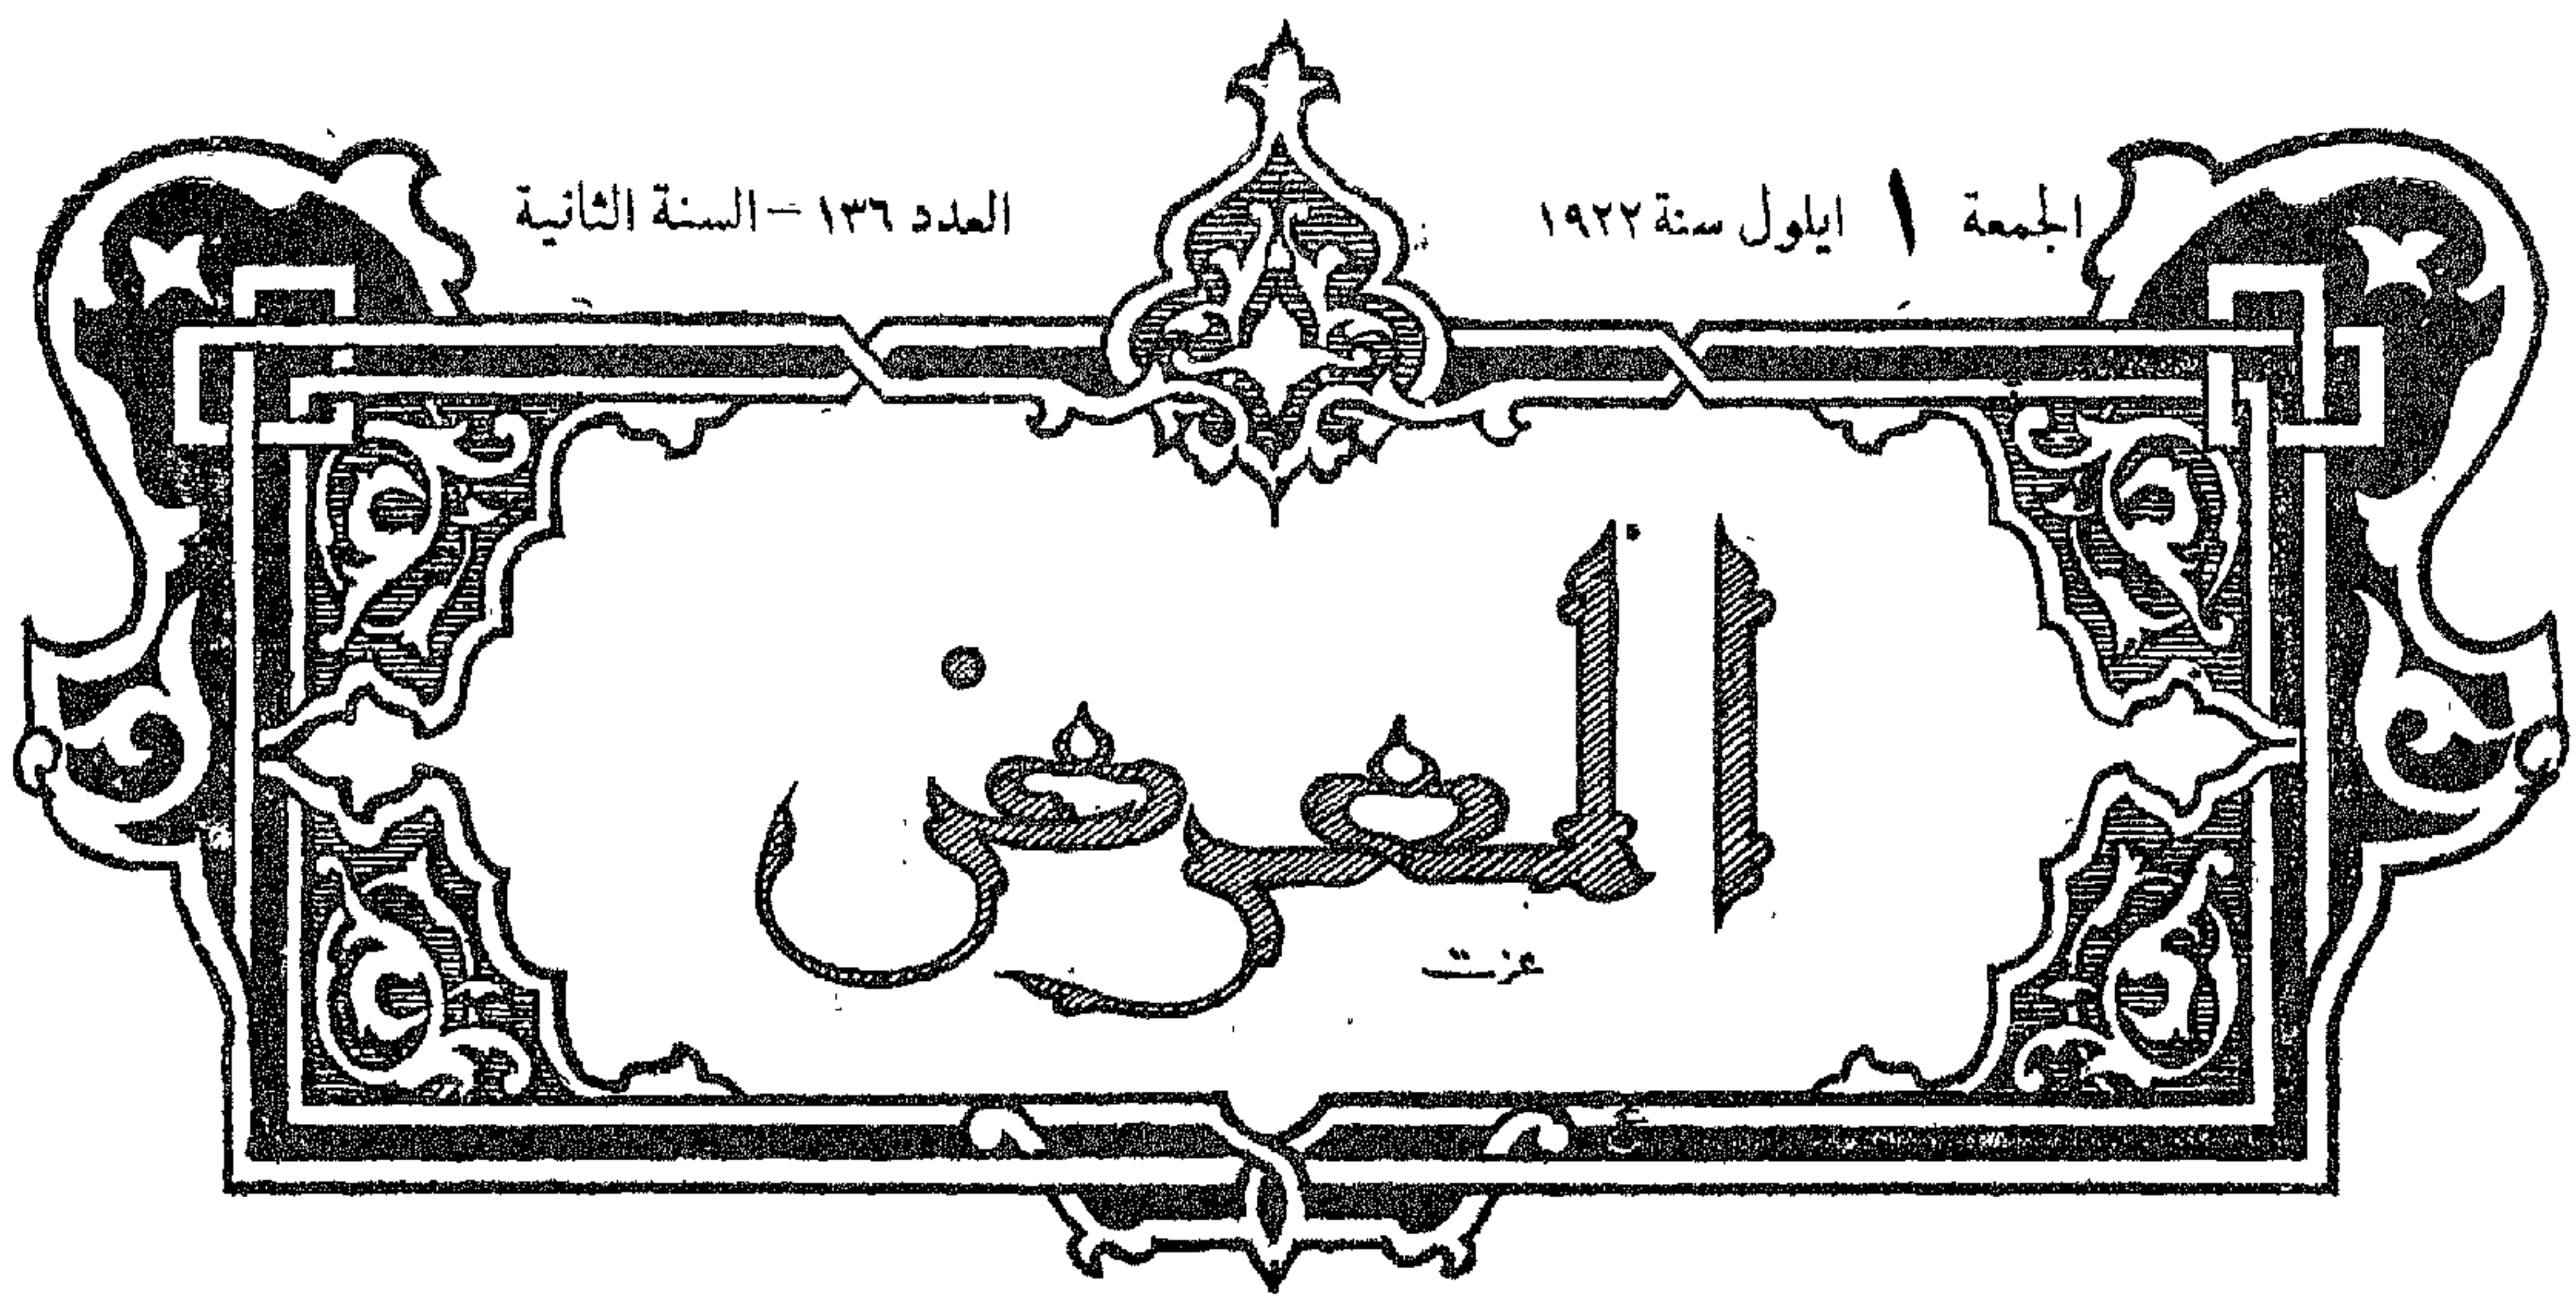 الجمعة ١ ايلول سنة ١٩٢٢
العدد ١٣٦ - السنة الثانية
المعرض
عزت